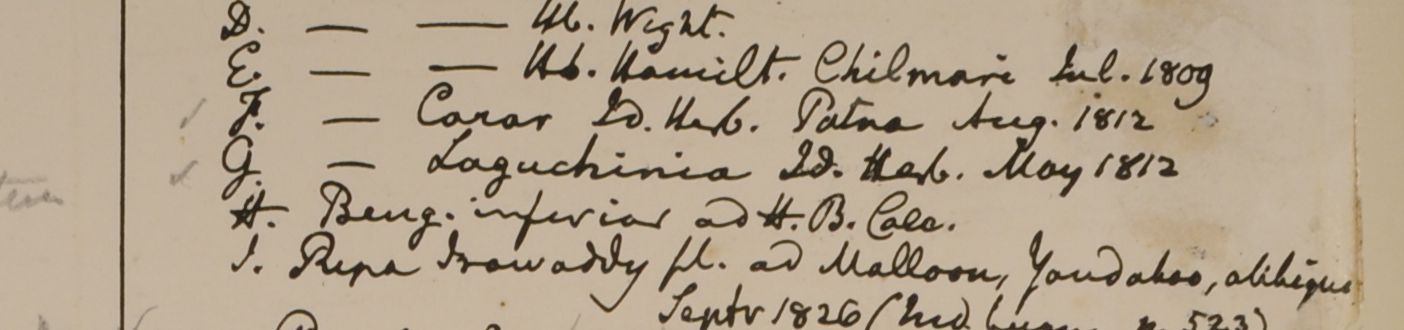 D. — — Hb. Wight.
E. — — Hb. Hamilt. Chilmari Jul. 1809
F. — Carar Id. Herb. Patna Aug. 1812
G. — Laguchinia Id. Herb. May 1812
H. Beng. inferior ad H. B. Calc.
I. Ripa Irawaddy fl. ad Malloon, Yandaboo, alibique
Septr 1826 (